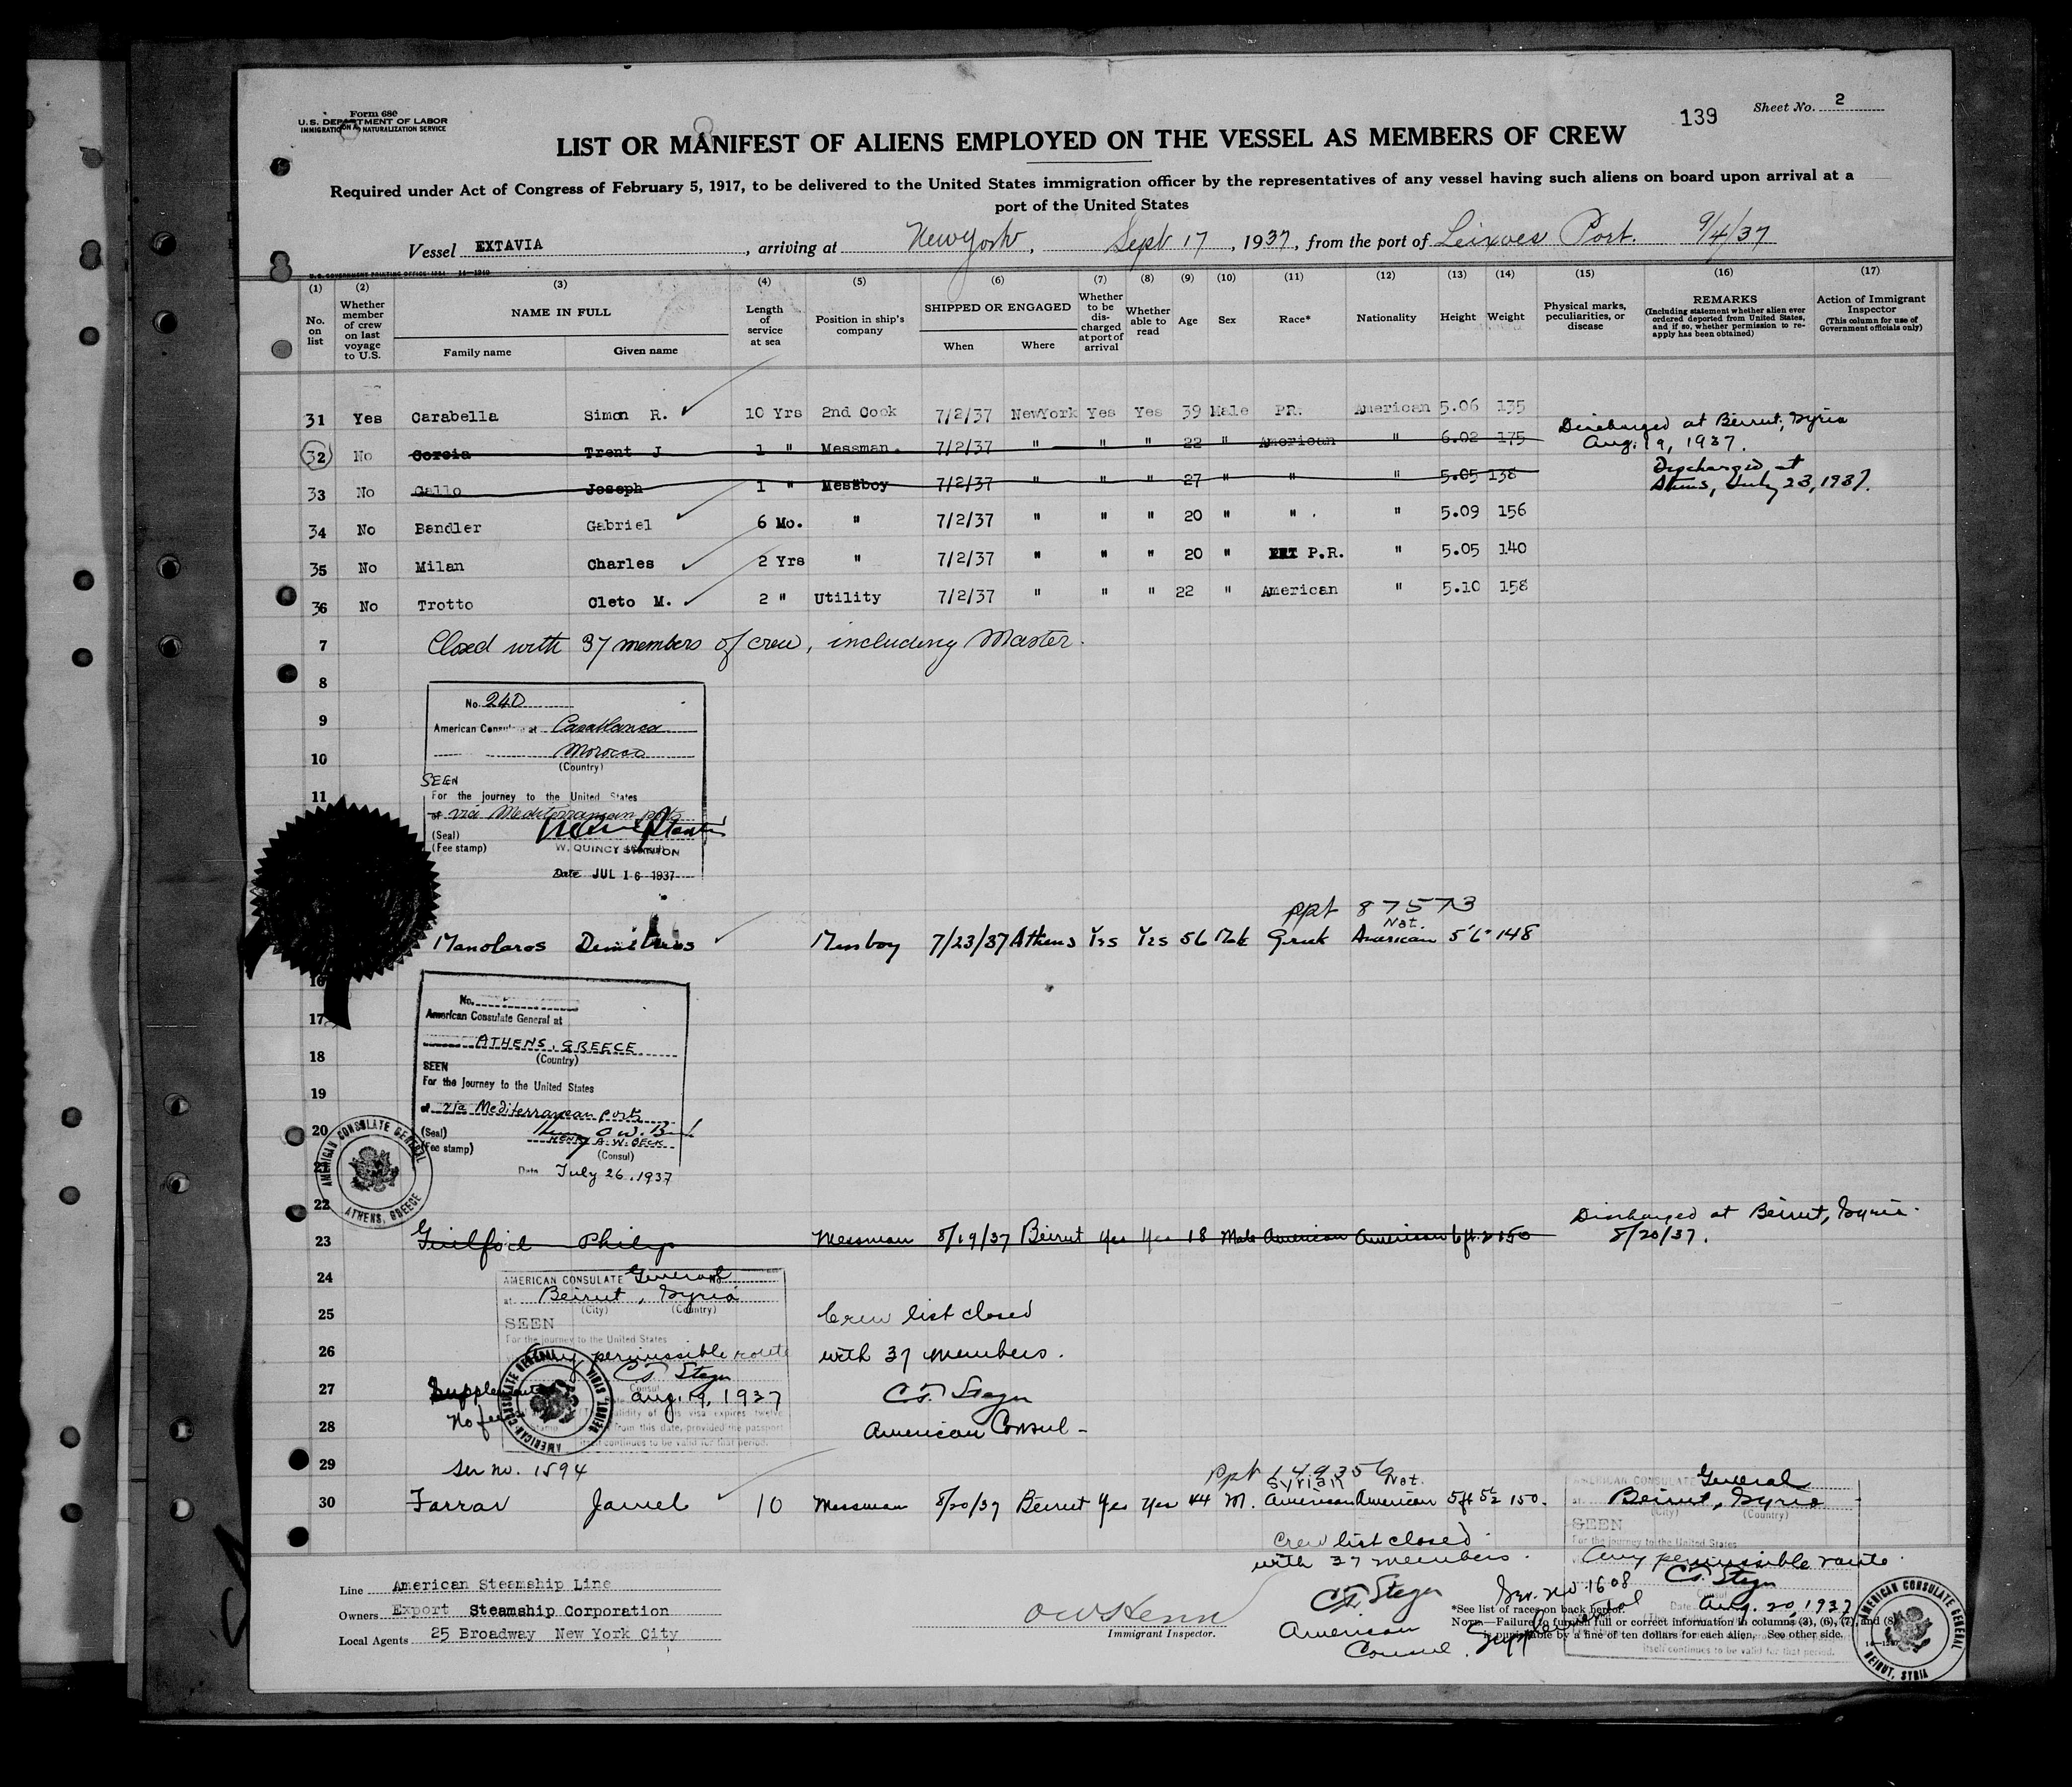 Form 680
U. S. DEPARTMENT OF LABOR
IMMIGRATION & NATURALIZATION SERVICE
139
Sheet No. 2
LIST OR MANIFEST OF ALIENS EMPLOYED ON THE VESSEL AS MEMBERS OF CREW
Required under Act of Congress of February 5, 1917, to be delivered to the United States immigration officer by the representatives of any vessel having such aliens on board upon arrival at a
port of the United States
Vessel EXTAVIA, arriving at New York, Sept 17, 1937, from the port of Leixoes Port. 9/4/37
U. S. GOVERNMENT PRINTING OFFICE
(1) (2) (3) (4) (5) (6) (7) (8) (9) (10) (11) (12) (13) (14) (15) (16) (17)
No. on list
Whether member of crew on last voyage to U.S.
NAME IN FULL
Family name
Given name
Length of service at sea
Position in ship's company
SHIPPED OR ENGAGED
When
Where
Whether to be discharged at port of arrival
Whether able to read
Age
Sex
Race*
Nationality
Height
Weight
Physical marks, peculiarities, or disease
REMARKS
(Including statement whether alien ever ordered deported from United States, and if so, whether permission to reapply has been obtained)
Action of Immigrant Inspector
(This column for use of Government officials only)
31 Yes Carabella Simon R. 10 Yrs 2nd Cook 7/2/37 NewYork Yes Yes 39 Male PR. American 5.06 135
32 No Corcia Trent J 1 " Messman. 7/2/37 " " " 22 " American " 6.02 175 Discharged at Beirut, Syria Aug. 19, 1937.
33 No Gallo Joseph 1 " Messboy 7/2/37 " " " 27 " " " 5.05 138 Discharged at Athens, July 23, 1937.
34 No Bandler Gabriel 6 Mo. " 7/2/37 " " " 20 " " . " 5.09 156
35 No Milan Charles 2 Yrs " 7/2/37 " " " 20 " P.R. " 5.05 140
36 No Trotto Cleto M. 2 " Utility 7/2/37 " " " 22 " American " 5.10 158
7 Closed with 37 members of crew, including Master.
8
No. 240
9
American Consulate at Casablanca
Morocco
10
(Country)
SEEN
11
For the journey to the United States
via Mediterranean ports
(Seal)
(Fee stamp)
W. QUINCY STANTON
Date JUL 16 1937
ppt 87573
Nat.
Manolaros Demetrios Messboy 7/23/37 Athens Yes Yes 56 Male Greek American 5'6" 148
16
No.
17
American Consulate General at
ATHENS, GREECE
18
(Country)
SEEN
For the journey to the United States
19
via Mediterranean ports
20
(Seal)
(Fee stamp)
HENRY A. W. BECK
(Consul)
Date July 26, 1937
AMERICAN CONSULATE GENERAL
ATHENS, GREECE
22
23 Guilford Philip Messman 8/19/37 Beirut Yes Yes 18 Male American American 6 ft. 2 150 Discharged at Beirut, Syria. 8/20/37.
24
AMERICAN CONSULATE General No.
at Beirut, Syria
(City) (Country)
25 Crew list closed
SEEN
For the journey to the United States
26 Any permissible route with 37 members.
C. T. Steger
27 Supplemental Aug. 19, 1937 C. T. Steger
No fee
from this date, provided the passport
itself continues to be valid for that period.
AMERICAN CONSULATE GENERAL
BEIRUT, SYRIA
28 American Consul -
29 Ser no. 1594
ppt 149356
Syrian Nat.
30 Farrar Jamel 10 Messman 8/20/37 Beirut Yes Yes 44 M. American American 5ft 5½ 150.
AMERICAN CONSULATE General
at Beirut, Syria
(City) (Country)
SEEN
For the journey to the United States
Any permissible route.
C. T. Steger
Date Aug. 20, 1937
Ser. No 1608
Supplemental
itself continues to be valid for that period.
Crew list closed
with 37 members.
C. T. Steger
American
Consul.
Line American Steamship Line
Owners Export Steamship Corporation
Local Agents 25 Broadway New York City
Immigrant Inspector.
*See list of races on back hereof.
NOTE.—Failure to furnish full or correct information in columns (3), (6), (7), and (8)
is punishable by a fine of ten dollars for each alien. See other side.
AMERICAN CONSULATE GENERAL
BEIRUT, SYRIA